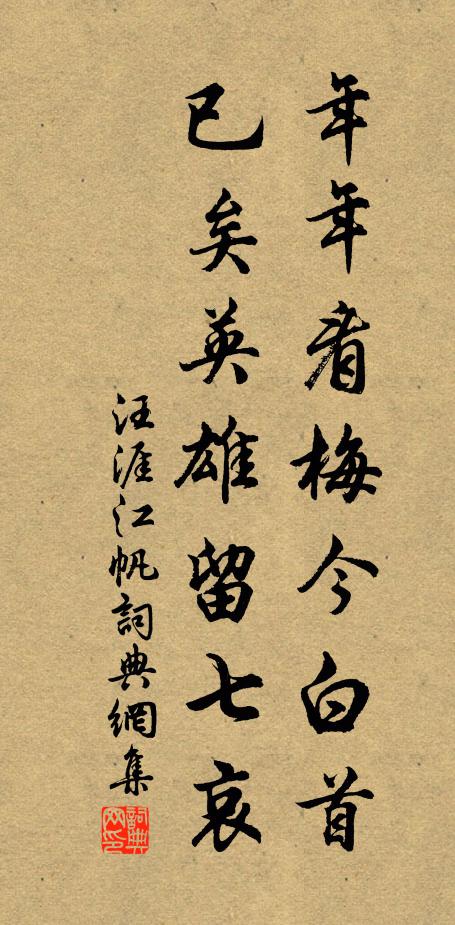 年年看梅今白首
已矣英雄留七哀
汪涯江帆詞典網集
詞典网印